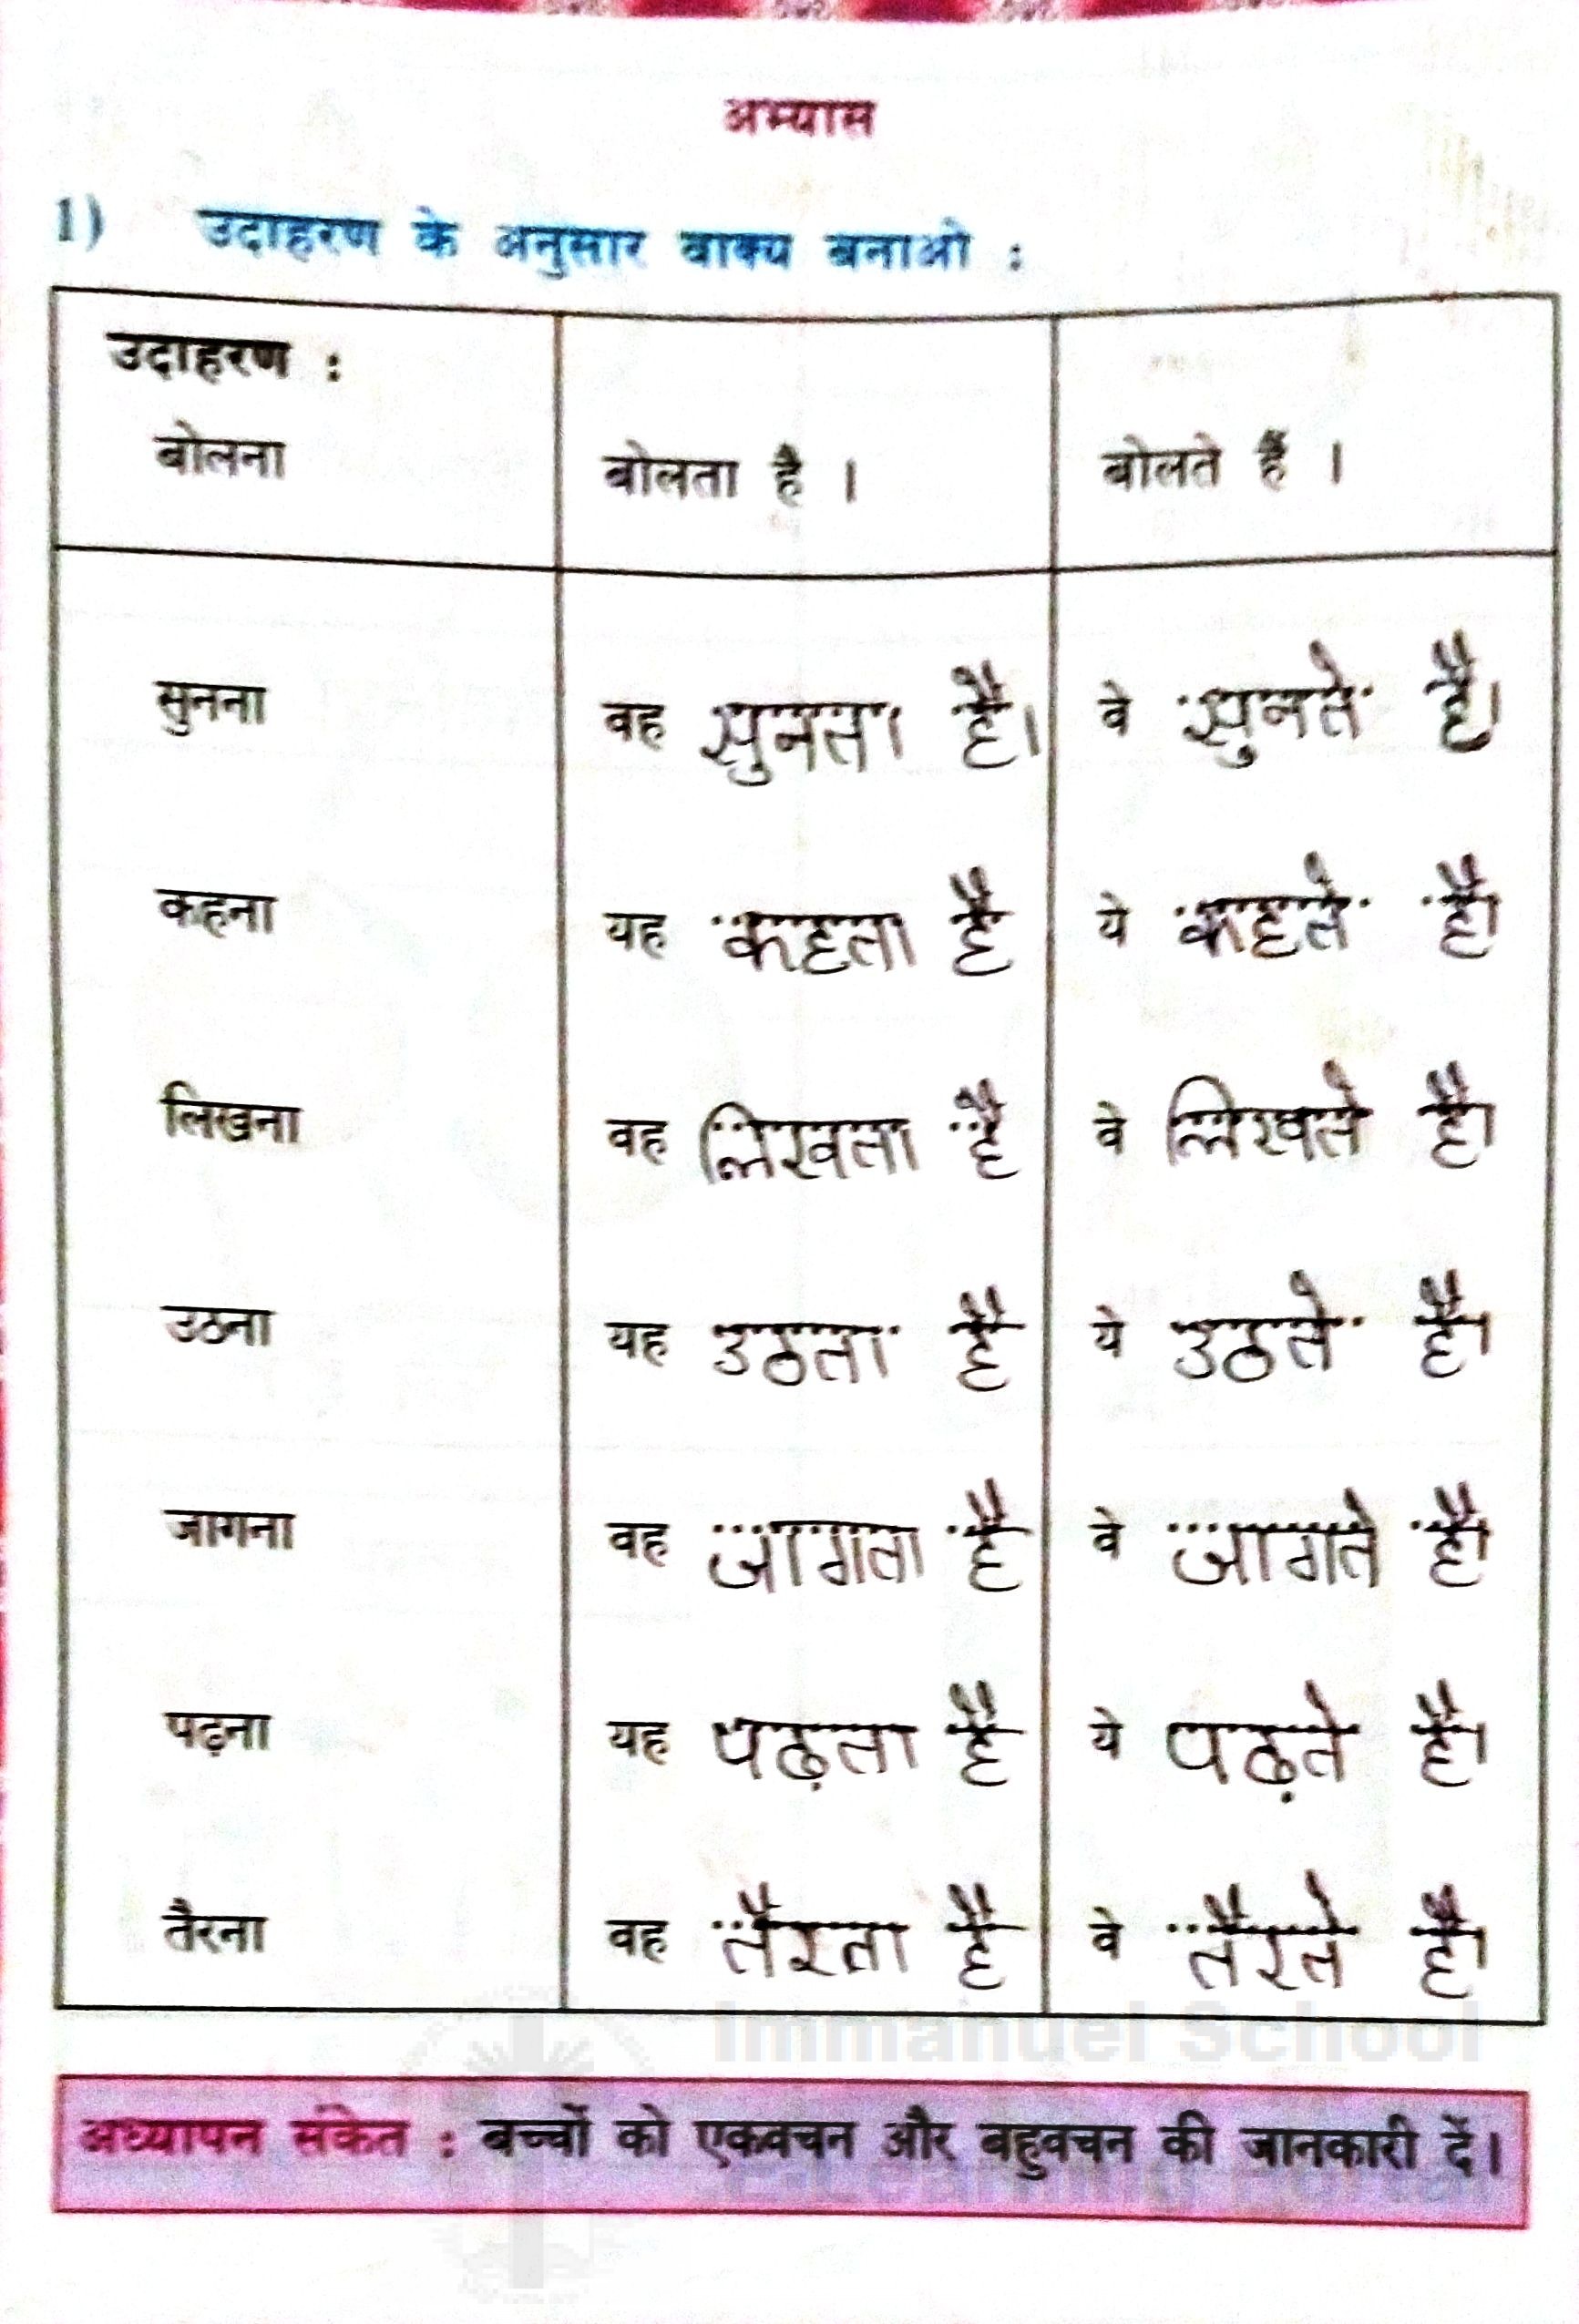 अभ्यास
1) उदाहरण के अनुसार वाक्य बनाओ :
उदाहरण :
बोलना बोलता है । बोलते हैं ।
सुनना वह सुनता है। वे सुनते है।
कहना यह कहता है ये कहते है।
लिखना वह लिखता है वे लिखते है।
उठना यह उठता है ये उठते है।
जागना वह जागता है वे जागते है।
पढ़ना यह पढ़ता है ये पढ़ते है।
तैरना वह तैरता है वे तैरते है।
Immanuel School
अध्यापन संकेत : बच्चों को एकवचन और बहुवचन की जानकारी दें।
E-Learning Portal